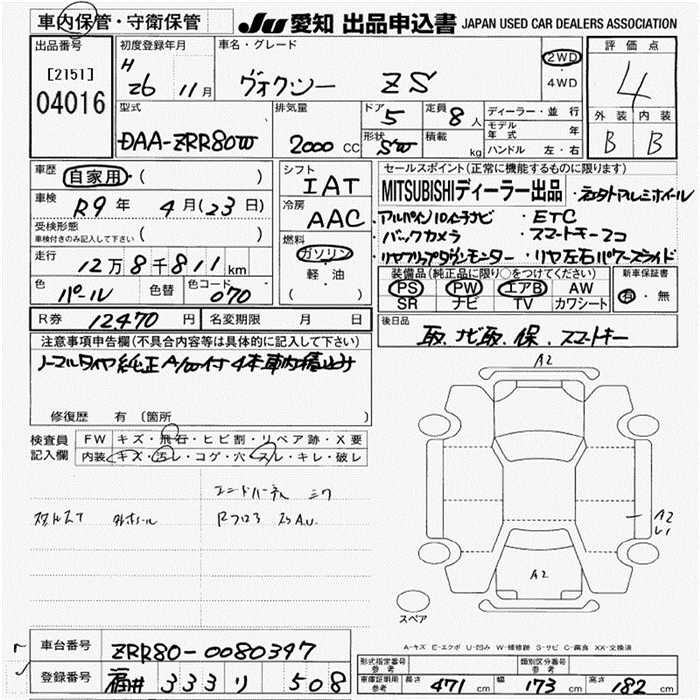 車内保管・守衛保管
JU 愛知 出品申込書 JAPAN USED CAR DEALERS ASSOCIATION
出品番号 [2151] 04016
初度登録年月 H 26 11月
車名・グレード ヴォクシー ZS
2WD・4WD
評価点 4
外装 B 内装 B
型式 DAA-ZRR80W
排気量 2000 CC
ドア 5 定員 8人
形状 SW 積載 kg
ディーラー・並行
モデル年式 年
ハンドル 左・右
車歴 自家用・( )
車検 R9年 4月(23日)
受検形態 車検付きのみ記入して下さい ( )
走行 12万8千811km
色 パール 色替 色コード 070
シフト IAT
冷房 AAC
燃料 ガソリン・軽・油 ( )
セールスポイント(正常に機能するものに限ります)
MITSUBISHIディーラー出品・社外アルミホイール
・アルパイン10インチナビ ・ETC
・バックカメラ ・スマートキー2コ
・リヤフリップダウンモニター ・リヤ左右パワースライド
装備品(純正品に限り○をつけてください)
PS PW エアB AW
SR ナビ TV カワシート
新車保証書 有・無
R券 12470円 名変期限 月 日
後日品 取、ナビ取、保、スマートキー
注意事項申告欄(不具合内容等は具体的に記入して下さい)
ノーマルタイヤ純正A/W付4本車内積込み
修復歴 有(箇所
検査員記入欄
FW キズ・飛石・ヒビ割・リペア跡・X要
内装 キズ・汚レ・コゲ・穴・スレ・キレ・破レ
A2
A2
A2
スペア
A-キズ E-エクボ U-凹み W-補修跡 S-サビ C-腐食 XX-交換済
車台番号 ZRR80-0080397
登録番号 福井 333 リ 508
形式指定番号 参考 類別区分番号 参考
車庫証明用 参考 長さ 471cm 幅 173cm 高さ 182cm